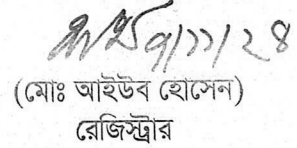 ৭/১১/২৪
(মোঃ আইউব হোসেন)
রেজিস্ট্রার